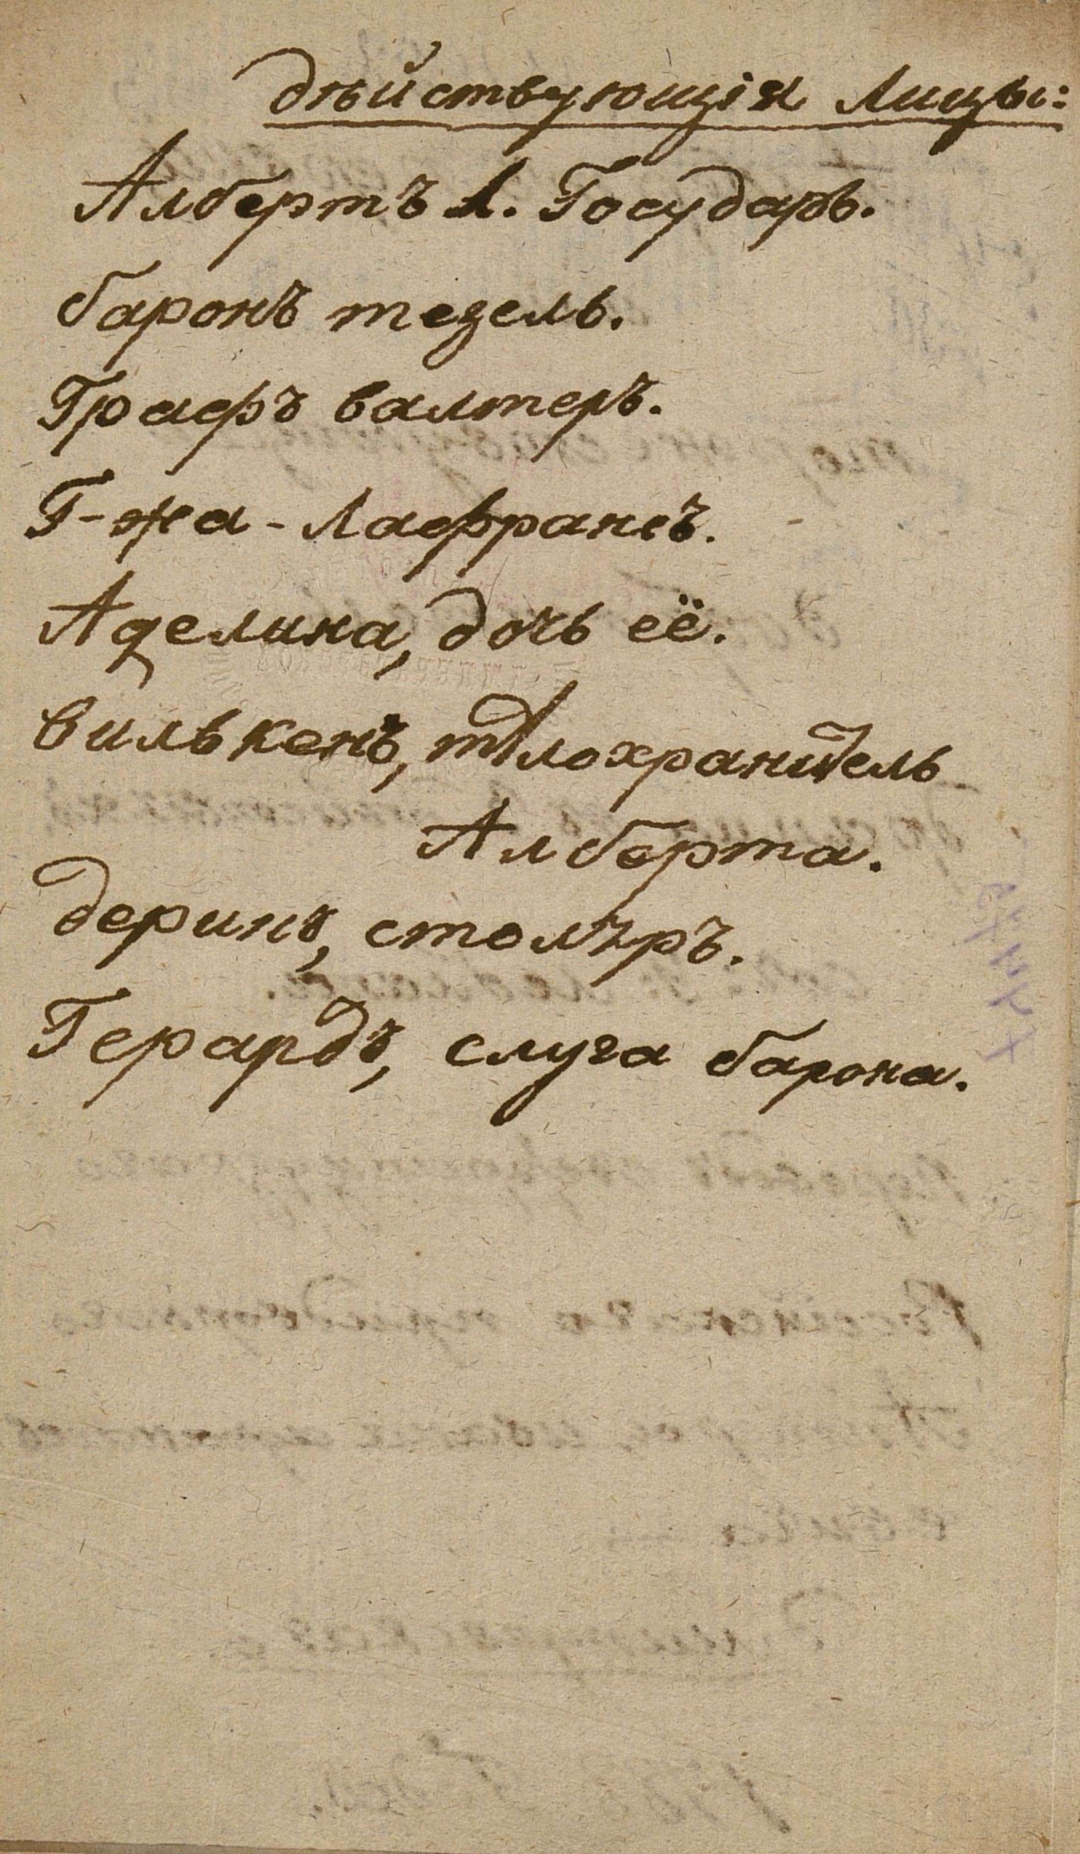 дѣйствующія Лицы:
Албертъ 1. Государь.
баронъ тезель.
Графъ валтеръ.
Г-жа-Лафрансъ.
Аделина, дочь её.
вилькенъ, тѣлохранитель
Алберта.
деринъ, столѣръ.
Герардъ, слуга барона.